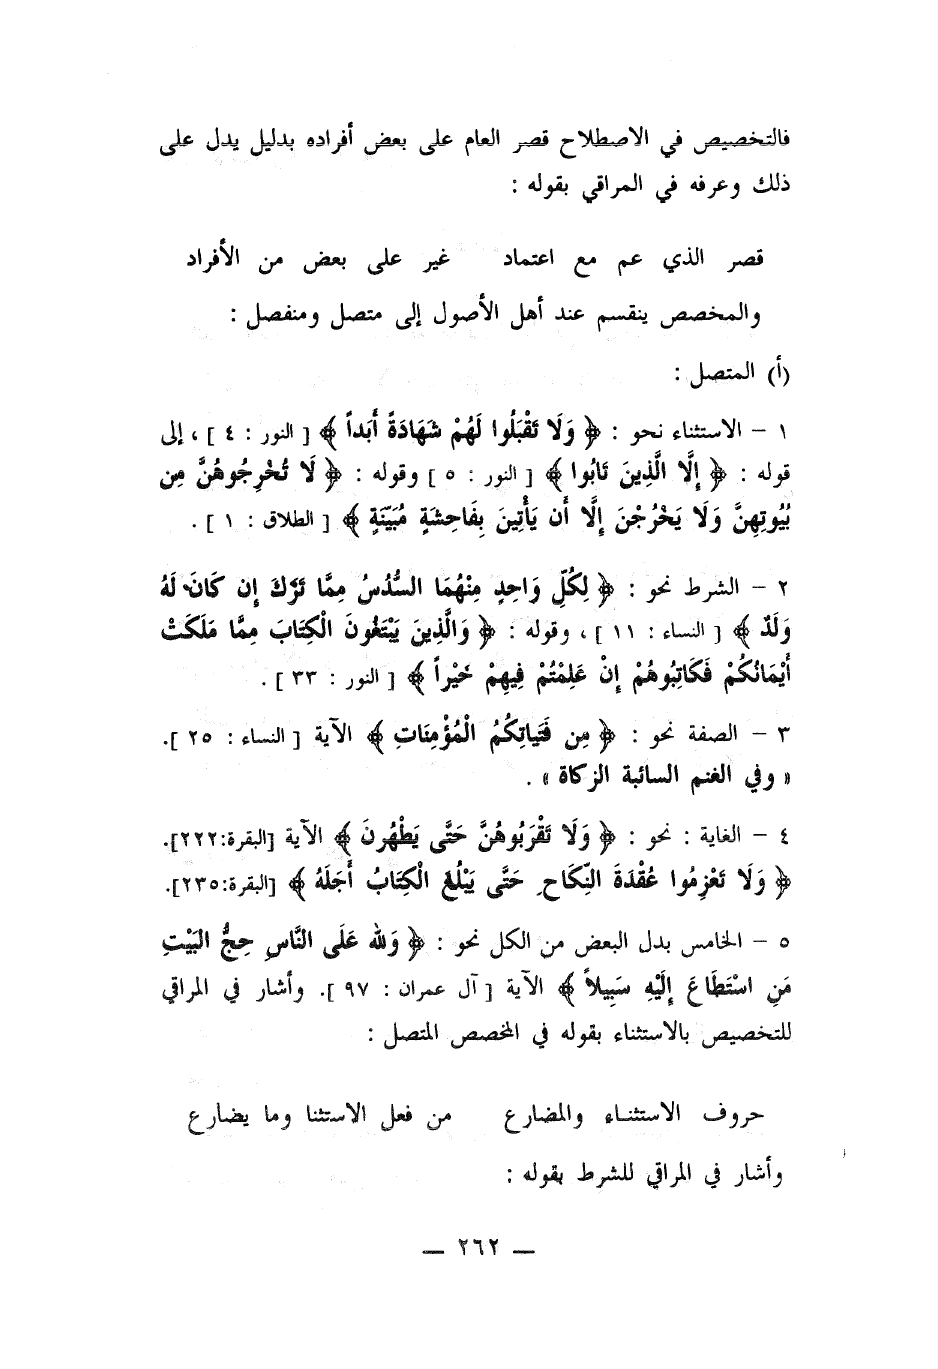 فالتخصيص في الاصطلاح قصر العام على بعض أفراده بدليل يدل على
ذلك وعرفه في المراقي بقوله :
قصر الذي عم مع اعتماد غير على بعض من الأفراد
والمخصص ينقسم عند أهل الأصول إلى متصل ومنفصل :
(أ) المتصل :
١ - الاستثناء نحو : ﴿ وَلَا تَقْبَلُوا لَهُمْ شَهَادَةً أَبَداً ﴾ [ النور : ٤ ] ، إلى
قوله : ﴿ إِلَّا الَّذِينَ تَابُوا ﴾ [ النور : ٥ ] وقوله : ﴿ لَا تُخْرِجُوهُنَّ مِن
بُيُوتِهِنَّ وَلَا يَخْرُجْنَ إِلَّا أَن يَأْتِينَ بِفَاحِشَةٍ مُبَيِّنَةٍ ﴾ [ الطلاق : ١ ] .
٢ - الشرط نحو : ﴿ لِكُلِّ وَاحِدٍ مِنْهُمَا السُّدُسُ مِمَّا تَرَكَ إِن كَانَ لَهُ
وَلَدٌ ﴾ [ النساء : ١١ ] ، وقوله : ﴿ وَالَّذِينَ يَبْتَغُونَ الْكِتَابَ مِمَّا مَلَكَتْ
أَيْمَانُكُمْ فَكَاتِبُوهُمْ إِنْ عَلِمْتُمْ فِيهِمْ خَيْراً ﴾ [ النور : ٣٣ ] .
٣ - الصفة نحو : ﴿ مِن فَتَيَاتِكُمُ الْمُؤْمِنَاتِ ﴾ الآية [ النساء : ٢٥ ].
« وفي الغنم السائبة الزكاة » .
٤ - الغاية : نحو : ﴿ وَلَا تَقْرَبُوهُنَّ حَتَّى يَطْهُرنَ ﴾ الآية [البقرة:٢٢٢].
﴿ وَلَا تَعْزِمُوا عُقْدَةَ النِّكَاحِ حَتَّى يَبْلُغَ الْكِتَابُ أَجَلَهُ ﴾ [البقرة:٢٣٥].
٥ - الخامس بدل البعض من الكل نحو : ﴿ وَلله عَلَى النَّاسِ حِجُّ البَيْتِ
مَنِ اسْتَطَاعَ إِلَيْهِ سَبِيلاً ﴾ الآية [ آل عمران : ٩٧ ]. وأشار في المراقي
للتخصيص بالاستثناء بقوله في المخصص المتصل :
حروف الاستثناء والمضارع من فعل الاستثنا وما يضارع
وأشار في المراقي للشرط بقوله :
— ٢٦٢ —